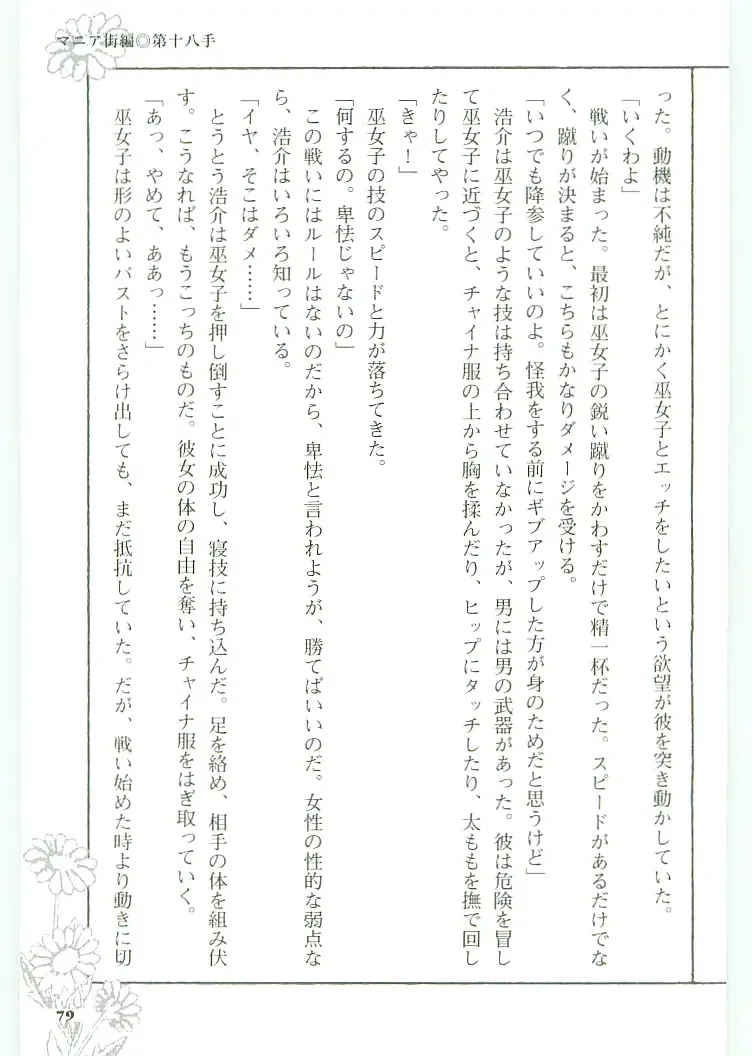 マニア街編◎第十八手
った。動機は不純だが、とにかく巫女子とエッチをしたいという欲望が彼を突き動かしていた。
「いくわよ」
戦いが始まった。最初は巫女子の鋭い蹴りをかわすだけで精一杯だった。スピードがあるだけでな
く、蹴りが決まると、こちらもかなりダメージを受ける。
「いつでも降参していいのよ。怪我をする前にギブアップした方が身のためだと思うけど」
浩介は巫女子のような技は持ち合わせていなかったが、男には男の武器があった。彼は危険を冒し
て巫女子に近づくと、チャイナ服の上から胸を揉んだり、ヒップにタッチしたり、太ももを撫で回し
たりしてやった。
「きゃ！」
巫女子の技のスピードと力が落ちてきた。
「何するの。卑怯じゃないの」
この戦いにはルールはないのだから、卑怯と言われようが、勝てばいいのだ。女性の性的な弱点な
ら、浩介はいろいろ知っている。
「イヤ、そこはダメ……」
とうとう浩介は巫女子を押し倒すことに成功し、寝技に持ち込んだ。足を絡め、相手の体を組み伏
す。こうなれば、もうこっちのものだ。彼女の体の自由を奪い、チャイナ服をはぎ取っていく。
「あっ、やめて、ああっ……」
巫女子は形のよいバストをさらけ出しても、まだ抵抗していた。だが、戦い始めた時より動きに切
79